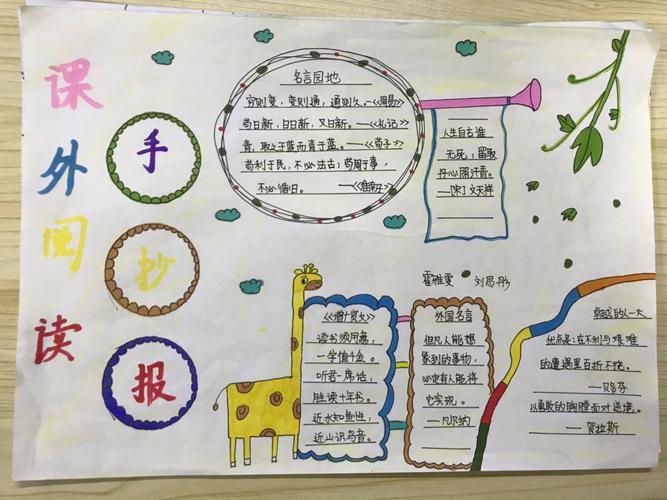 课外阅读
手抄报
名言园地
穷则变，变则通，通则久。——《周易》
苟日新，日日新，又日新。——《礼记》
青，取之于蓝而青于蓝。——《荀子》
苟利于民，不必法古；苟周于事，
不必循旧。——《淮南子》
人生自古谁
无死，留取
丹心照汗青。
—[宋]文天祥
霍雅雯 刘思彤
《增广贤文》
读书须用意，
一字值千金。
听君一席话，
胜读十年书。
近水知鱼性，
近山识鸟音。
外国名言
但凡人能想
象到的事物，
必定有人能将
它实现。
——凡尔纳
卓越的人一大
优点是：在不利与艰难
的遭遇里百折不挠。
——贝多芬
以勇敢的胸膛面对逆境。
——贺拉斯